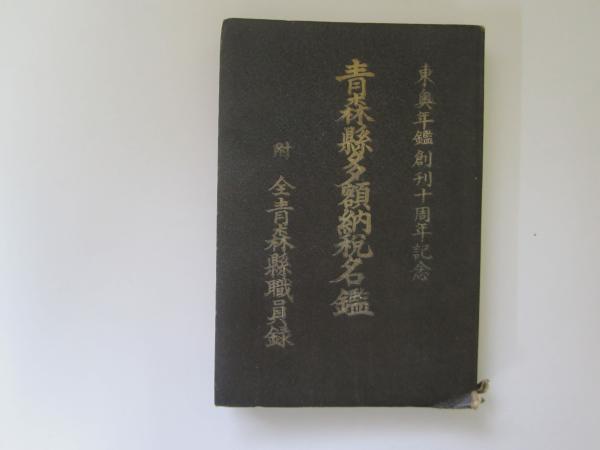 東奥年鑑創刊十周年記念
青森縣多額納税名鑑
附 全青森縣職員録